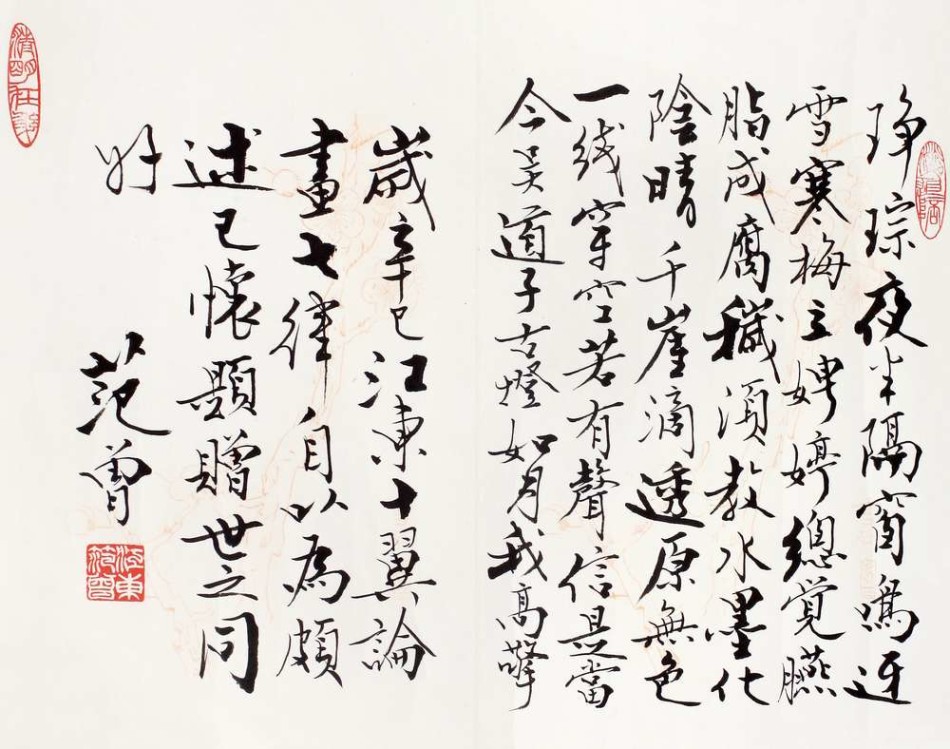 琤琮夜半隔窗鳴迓
雪寒梅立娉婷總覺臙
脂成腐穢須教水墨化
陰晴千崖滴透原無色
一线穿空若有聲信是當
今吴道子古燈如月我高擎
歲辛巳江東十翼論
畫七律自以為頗
述己懷題贈世之同
好
范曾
江東范曾
清明在躬